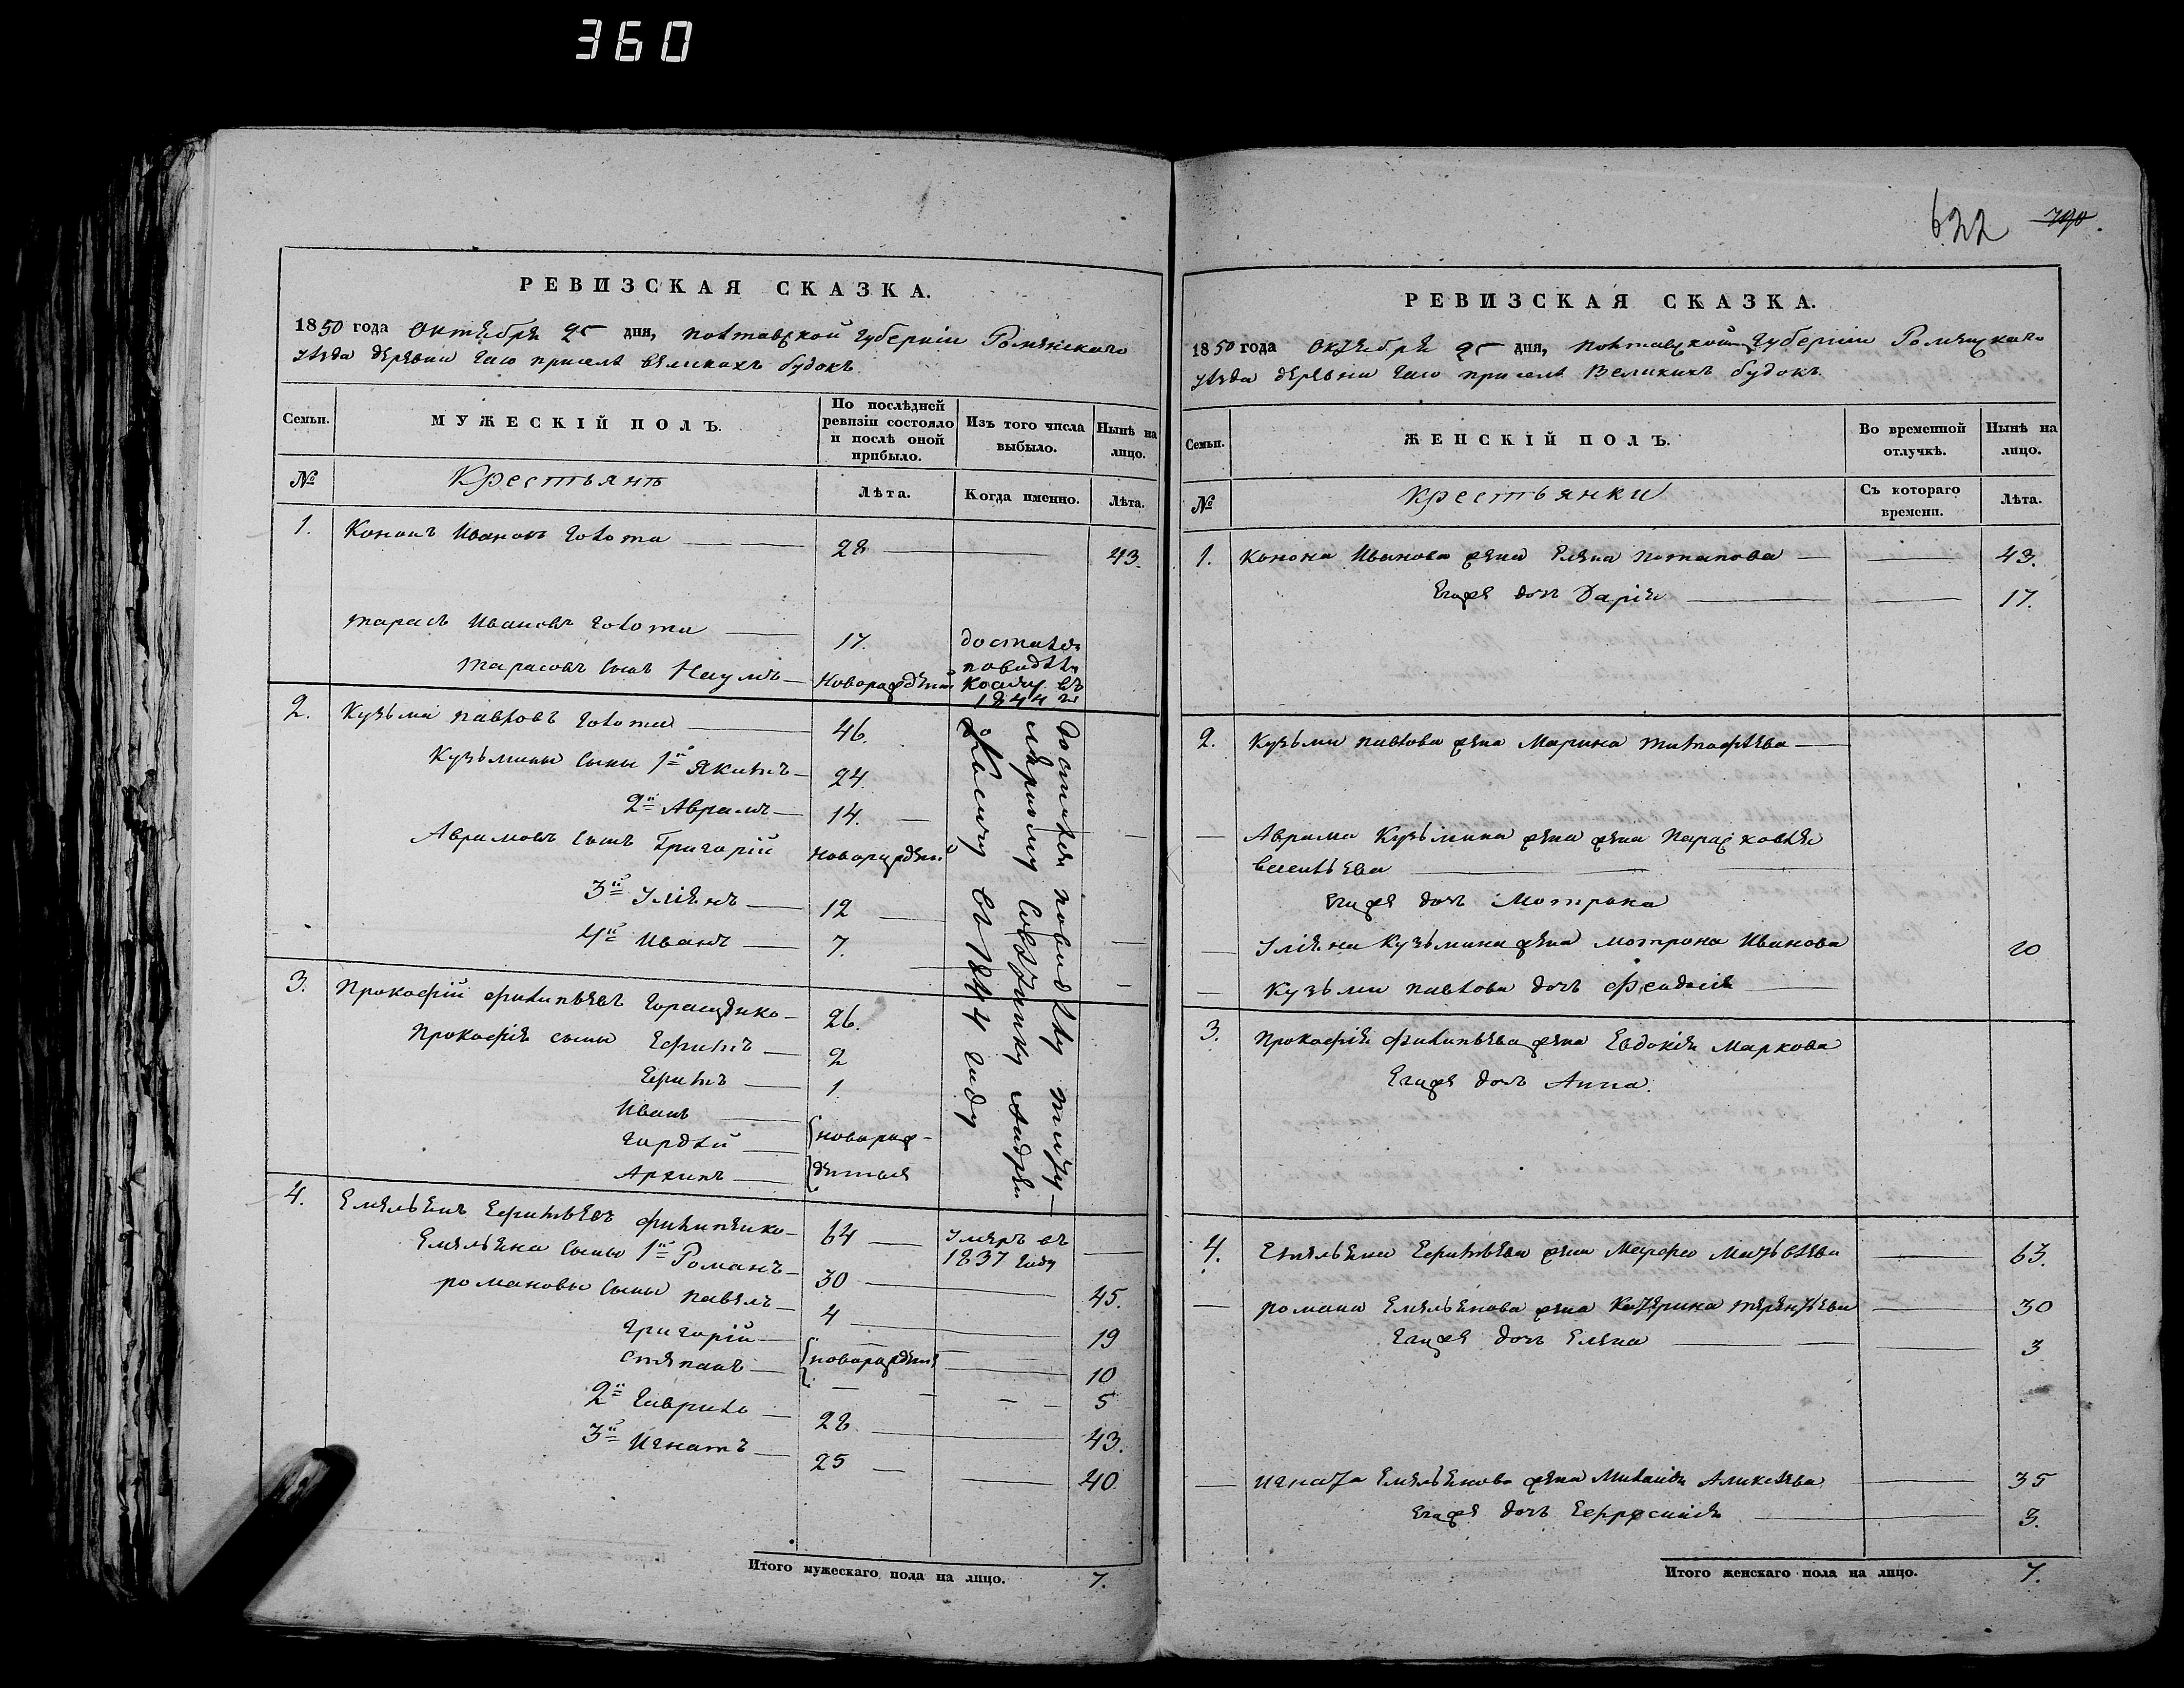 360
РЕВИЗСКАЯ СКАЗКА.
1850 года Октября 25 дня, Полтавской губерніи Роменскаго
уѣзда деревни Гаю приселѣ великихъ будокъ
Семьи.
МУЖЕСКІЙ ПОЛЪ.
По послѣдней ревизіи состояло и послѣ оной прибыло.
Изъ того числа выбыло.
Нынѣ на лицо.
№
Крестьянъ
Лѣта.
Когда именно.
Лѣта.
1. Кононъ Ивановъ Голота 28 43.
Тарасъ Ивановъ Голота 17. достался
Тарасовъ сынъ Наумъ новорожденъ
по раздѣлу
въ
1844
2. Кузьма Павловъ Голота 46.
Кузьмины сыны 1й Якимъ 24.
2й Аврамъ 14.
Аврамовъ сынъ Григорій новорожденный
3й Уліянъ 12
4й Иванъ 7.
достался по раздѣлу титу-
лярному совѣтнику Андрею
въ 1844 году
3. Прокофій Филипьевъ 26.
Прокофія сыны Ефимъ 2
Ефимъ 1.
Иванъ
Гордѣй новорож-
Архипъ денные
4. Емельянъ Филипенко 64 умеръ въ
1837 году
Емельяна сыны 1й Романъ 30 45.
Романовы сыны Павелъ 4 19
Григорій новорожденные 10
Степанъ 5
2й Гаврило 28 43.
3й Игнатъ 25 40.
Итого мужескаго пола на лицо. 7.
622 790.
РЕВИЗСКАЯ СКАЗКА.
1850 года Октября 25 дня, Полтавской губерніи Роменскаго
уѣзда деревни Гаю приселѣ Великихъ будокъ.
Семьи.
ЖЕНСКІЙ ПОЛЪ.
Во временной отлучкѣ.
Нынѣ на лицо.
№
Крестьянки
Съ котораго времени.
Лѣта.
1. Конона Иванова жена Елена Потапова 43.
Егоже дочь Дарія 17.
2. Кузьмы Павлова жена Марина Тимофѣева
Аврама Кузьмина жена жена Парасковія
Васильева
Егоже дочь Мотрона
Уліяна Кузьмина жена Мотрона Иванова 20
Кузьмы Павлова дочь Феодосія
3. Прокофія Филипьева жена Евдокія Маркова
Егоже дочь Анна.
4. Емельяна жена Марфа Матвѣева 63.
Романа Емельянова жена Катерина Терентьева 30
Егоже дочь Елена 3
Игната Емельянова жена Алексѣева 35
Егоже дочь Ефросинія 3.
Итого женскаго пола на лицо. 7.